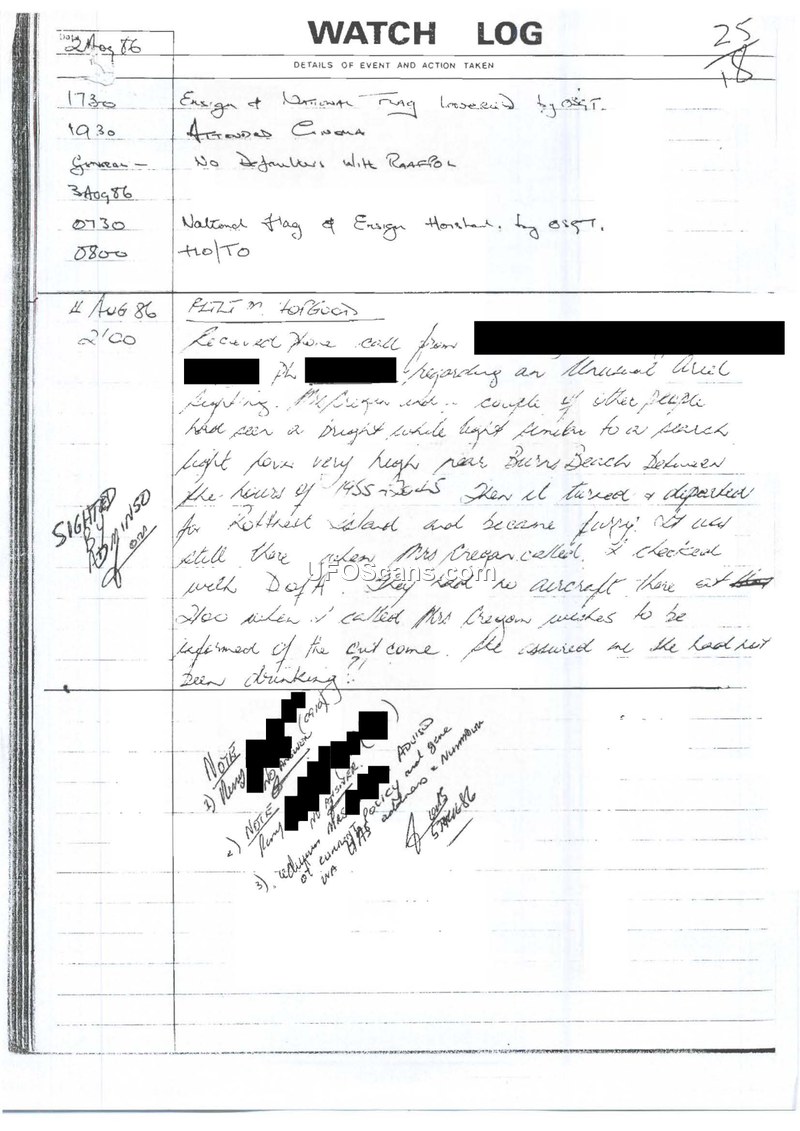 DATE
2 Aug 86
WATCH LOG
25
18
DETAILS OF EVENT AND ACTION TAKEN
1730 Ensign & National Flag lowered by
1930 Attended Cinema
General — No Defaulters with RAAFPOL
3 Aug 86
0730 National Flag & Ensign by
0800 HO/TO
4 AUG 86
2100 Received phone call from
Ph regarding an Unusual Ariel
Sighting. Mrs Cregan and a couple of other people
had seen a bright white light similar to a search
light hover very high near Burns Beach between
the hours of 1955-2045 Then it turned & departed
for Rottnest Island and became fuzzy. It was
still there when Mrs Cregan called. I checked
with DofA. They had no aircraft there at
2100 when I called Mrs Cregan wishes to be
informed of the out come. She assured me she had not
been drinking?!
SIGHTED
By
ADMINSO
UFOScans.com
NOTE
1) Rang
NO ANSWER
2) NOTE
Rang
NO ANSWER
3) MRS ADVISED
of current policy and gave
WA address & Number
5 AUG 86